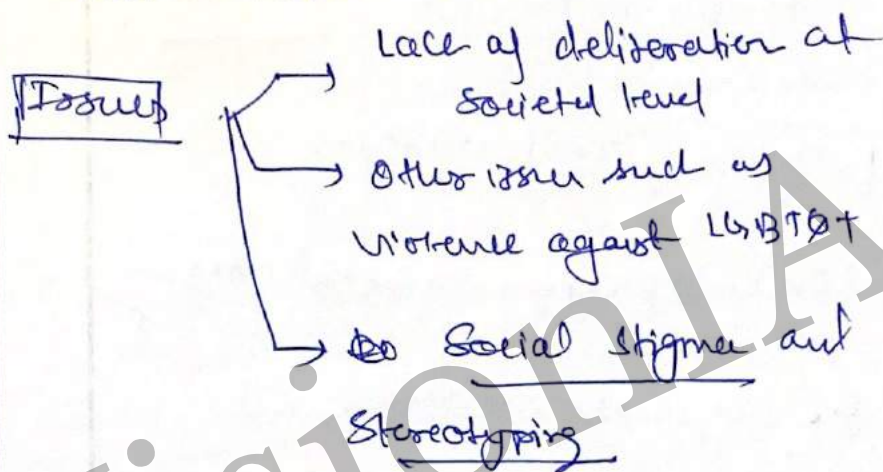 Issues
Lack of deliberation at
societal level
Other issues such as
violence against LGBTQ+
Social Stigma and
Stereotyping
VisionIA